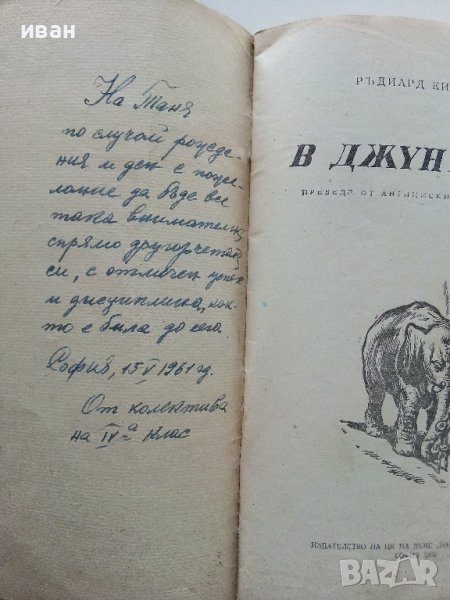 иван
На Таня
по случай рожде-
ния и ден с поже-
лание да бъде все
така внимателна
спрямо другарчетата
си, с отличен успех
и дисциплина, как-
то е била до сега
София, 15 V 1961 год.
От колектива
на IV-а клас
РЪДИАРД КИ
В ДЖУН
ПРЕВЕЛ ОТ АНГЛИЙСКИ
ИЗДАТЕЛСТВО НА ЦК НА ДКМС „НА
СОФИЯ
BAZAR.bg